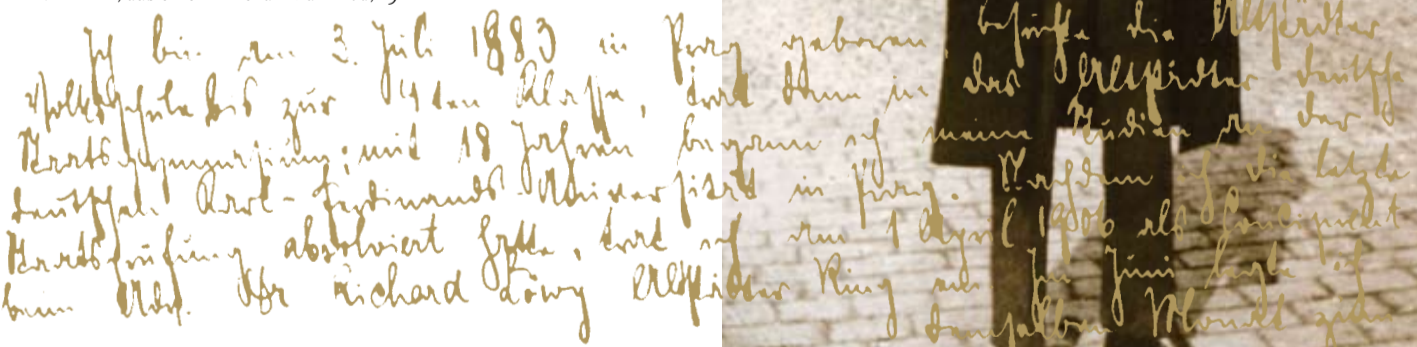 Ich bin am 3. Juli 1883 in Prag geboren, besuchte die Altstädter
Volksschule bis zur 4ten Klasse, trat dann in das Altstädter deutsche
Staatsgymnasium; mit 18 Jahren begann ich meine Studien an der
deutschen Karl-Ferdinands-Universität in Prag. Nachdem ich die letzte
Staatsprüfung absolviert hatte, trat ich am 1 April 1906 als Concipient
beim Adv. Dr Richard Löwy Altstädter Ring ein. Im Juni legte ich
demselben Monat zum